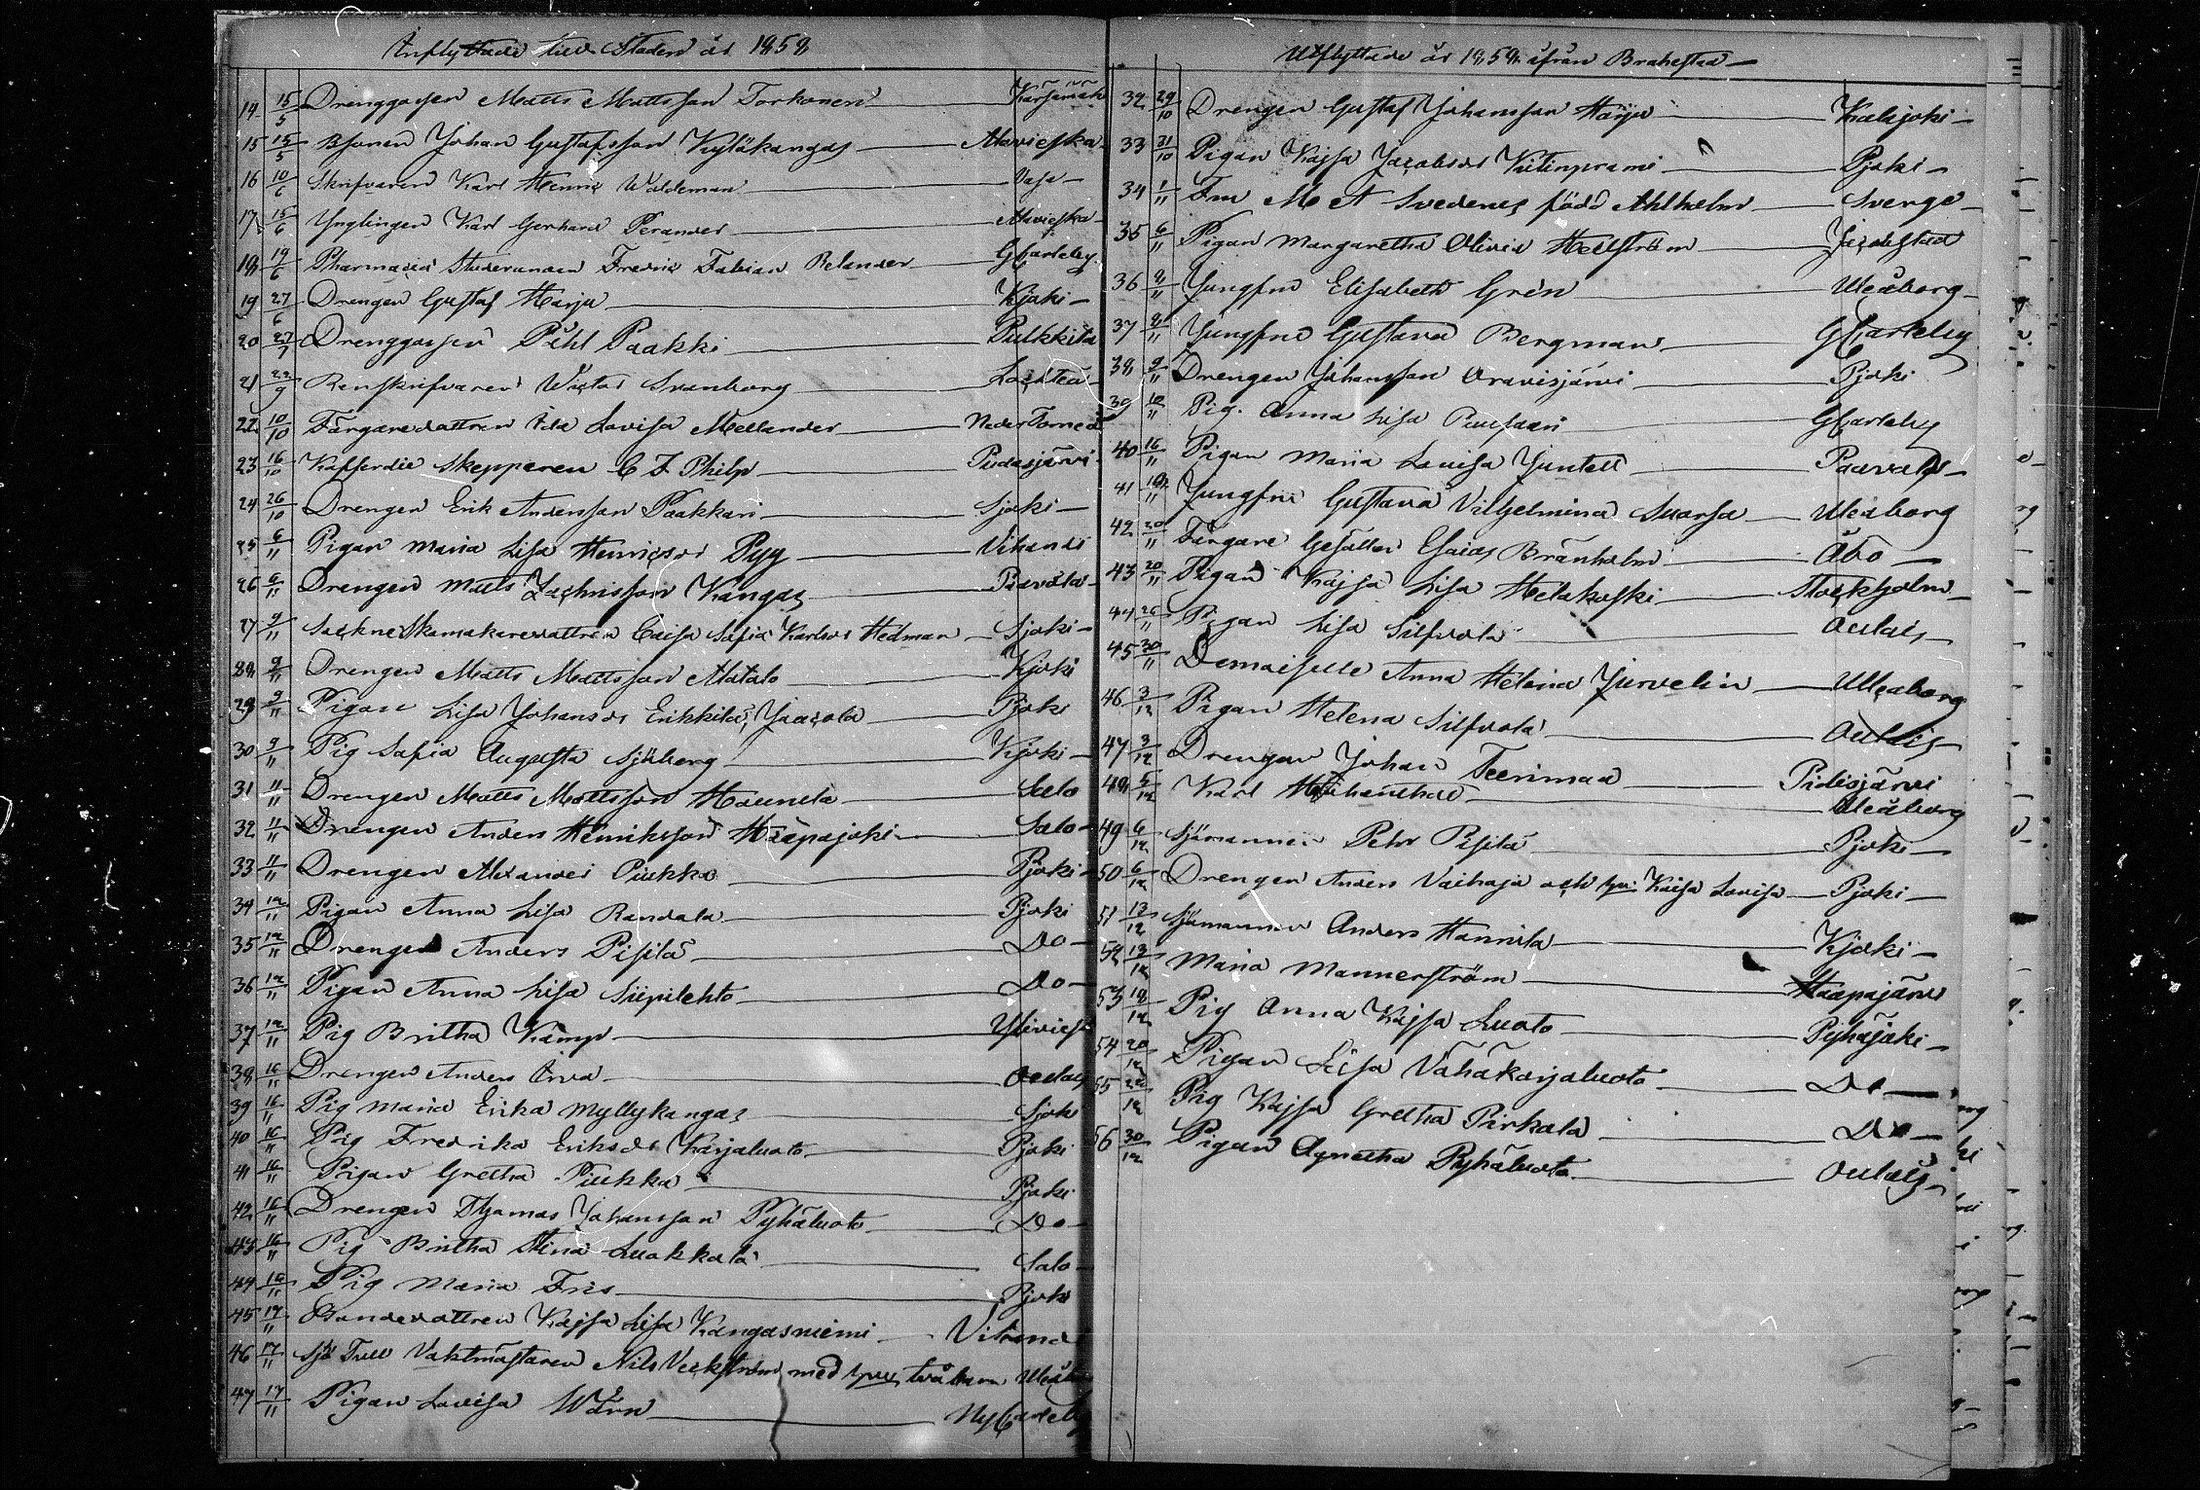 Inflyttade till Staden år 1858
14 15/5 Drenggossen Matts Mattsson Torkonen Kärsämäk
15 15/5 Bsonen Johan Gustafsson Kylökangas Alavieska
16 10/6 Skrifvaren Karl Henric Woldeman Vasa
17 15/6 Ynglingen Karl Gerhard Perander Alavieska
18 19/6 Pharmacia Studeranden Fredric Fabian Relander GCarleby
19 27/6 Drengen Gustaf Harju Kjoki
20 27/7 Drenggossen Pehl Paakki Pulkkila
21 22/9 Renskrifvaren Victor Svanborg Lochteå
22 10/10 Färgaredottren Ida Lovisa Mellander Neder Torneå
23 16/10 Kofferdie Skepparen C F Philp Pudasjärvi
24 26/10 Drengen Erik Andersson Paakkari Sjoki
25 6/11 Pigan Maria Lisa Henricsdr Pyy Vihandi
26 6/11 Drengen Matts Zachrisson Kangas Paavola
27 9/11 Sockneskomakaredottren Caisa Sofia Karlsdr Hedman Sjoki
28 9/11 Drengen Matts Mattsson Alatalo Kjoki
29 9/11 Pigan Lisa Johansdr Erikkilä, Jaacola Pjoki
30 9/11 Pig Sofia Augusta Sjöberg Kjoki
31 11/11 Drengen Matts Mattsson Hounela Salo
32 11/11 Drengen Anders Henriksson Haapajoki Salo
33 11/11 Drengen Alexander Piukka Pjoki
34 12/11 Pigan Anna Lisa Randala Pjoki
35 12/11 Drengen Anders Pisilä Do
36 12/11 Pigan Anna Lisa Siipilehto Do
37 12/11 Pig Britha Kämp Ylivieska
38 16/11 Drengen Anders Orva Oulais
39 16/11 Pig Maria Erika Myllykangas Sjoki
40 16/11 Pig Fredrika Eriksdr Karjaluoto Pjoki
41 16/11 Pigan Gretha Piukka Pjoki
42 16/11 Drengen Thomas Johansson Pyhäluoto Do
43 16/11 Pig Britha Stina Luokkala Salo
44 16/11 Pig Maria Fris Pjoki
45 17/11 Bondedottren Kajsa Lisa Kangasniemi Vihand
46 17/11 Sjö Tull Vaktmästaren Nils Veckström med hustru, två barn Uleåb
47 17/11 Pigan Lovisa Wärn NyCarleby
Utflyttade år 1858 ifrån Brahestad
32 29/10 Drengen Gustaf Johansson Harju Kalajoki
33 31/10 Pigan Kajsa Jacobsdr Kiilinprami Pjoki
34 1/11 Fru M A Svedenes född Ahlholm Sverge
35 6/11 Pigan Margaretha Olivia Hellström Jacobstad
36 8/11 Jungfru Elisabeth Grén Uleåborg
37 8/11 Jungfru Gustava Bergman GCarleby
38 9/11 Drengen Johansson Oravisjärvi Pjoki
39 10/11 Pig. Anna Lisa GCarleby
40 16/11 Pigan Maria Lovisa Juntell Paavola
41 18/11 Jungfru Gustava Vilhelmina Suorsa Uleåborg
42 20/11 Färgare Gesällen Esaias Bränholm Åbo
43 20/11 Pigan Kajsa Lisa Helakoski Stockholm
44 26/11 Pigan Lisa Silfvola Oulais
45 30/11 Demoiselle Anna Helena Jurvelin Uleåborg
46 3/12 Pigan Helena Silfvola Oulais
47 3/12 Drengen Johan Teerimaa Pidisjärvi
48 5/12 Karl Uleåborg
49 6/12 Sjömannen Pehr Pisilä Pjoki
50 6/12 Drengen Anders Vaihoja och hru: Kaisa Lovisa Pjoki
51 13/12 Sjömannen Anders Hannila Kjoki
52 13/12 Maria Mannerström Haapajärvi
53 18/12 Pig Anna Kajsa Luoto Pyhäjoki
54 20/12 Pigan Lisa Vähäkarjaluoto Do
55 22/12 Pig Kajsa Gretha Pirkola Do
56 30/12 Pigan Agnetha Pyhäluoto Oulais